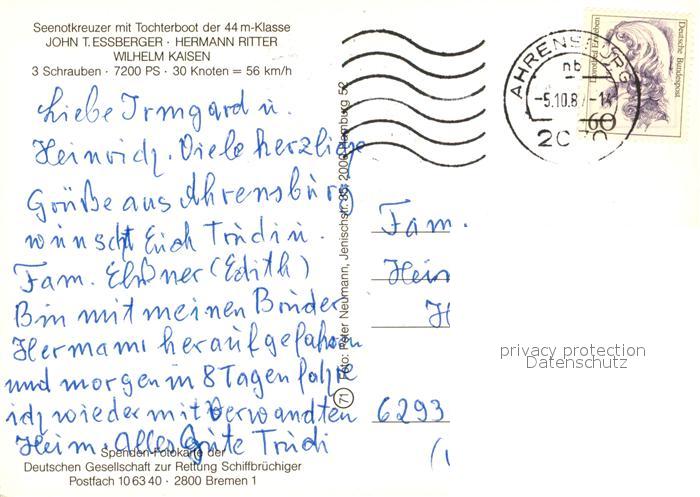 Seenotkreuzer mit Tochterboot der 44 m-Klasse
JOHN T. ESSBERGER · HERMANN RITTER
WILHELM KAISEN
3 Schrauben · 7200 PS · 30 Knoten = 56 km/h
Liebe Irmgard u.
Heinrich. Viele herzliche
Grüße aus Ahrensburg
wünscht Euch Trudi u.
Fam. Elsner (Edith)
Bin mit meinen Bruder
Hermann heraufgefahren
und morgen in 8 Tagen fahre
ich wieder mit Verwandten
Heim. Alles Gute Trudi
Spenden-Fotokarte der
Deutschen Gesellschaft zur Rettung Schiffbrüchiger
Postfach 10 63 40 · 2800 Bremen 1
(71) Foto: Peter Neumann, Jenischstr. 85, 2000 Hamburg 52
AHRENSBURG
nb
-5.10.8 -14
Deutsche Bundespost
Dorothea Erxleben
60
Fam.
Hein
H
6293
privacy protection
Datenschutz